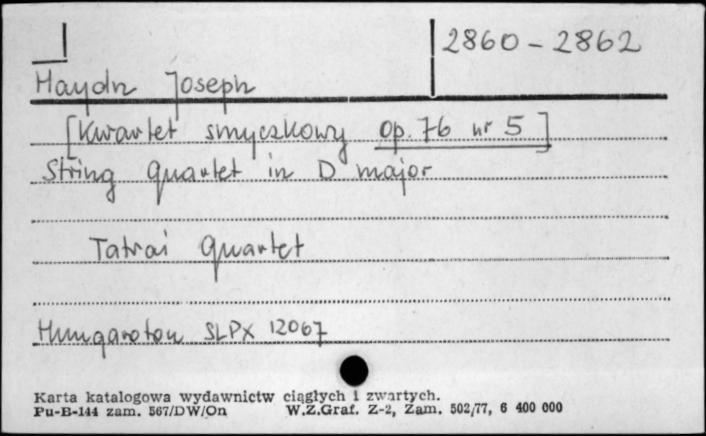 2860 - 2862
Haydn Joseph
[Kwartet smyczkowy op. 76 nr 5]
String quartet in D major
Tatrai Quartet
Hungaroton SLPX 12067
Karta katalogowa wydawnictw ciągłych i zwartych.
Pu-B-144 zam. 567/DW/On W.Z.Graf. Z-2, Zam. 502/77, 6 400 000